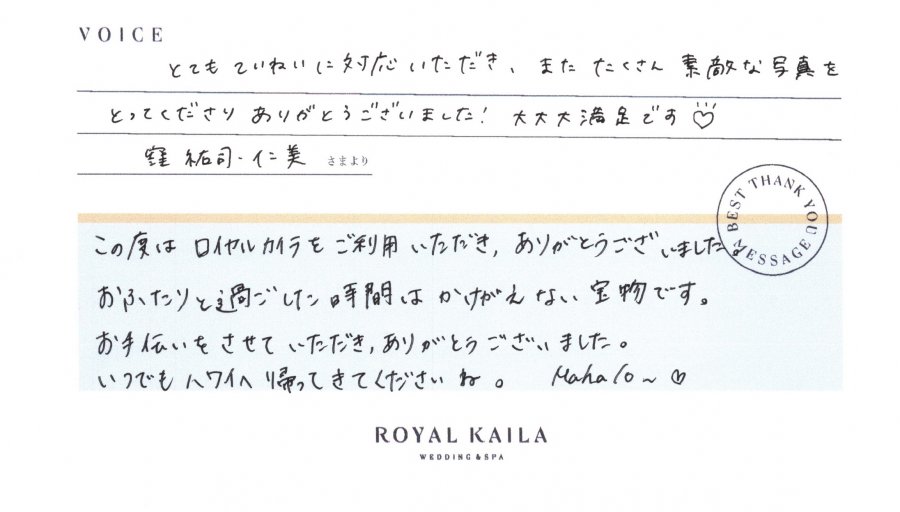 VOICE
とてもていねいに対応いただき、またたくさん素敵な写真を
とってくださりありがとうございました！大大大満足です♡
窪 祐司・仁美 さまより
BEST THANK YOU MESSAGE
この度はロイヤルカイラをご利用いただき,ありがとうございました。
おふたりと過ごした時間はかけがえない宝物です。
お手伝いをさせていただき,ありがとうございました。
いつでもハワイへ帰ってきてくださいね。 Mahalo~♡
ROYAL KAILA
WEDDING & SPA